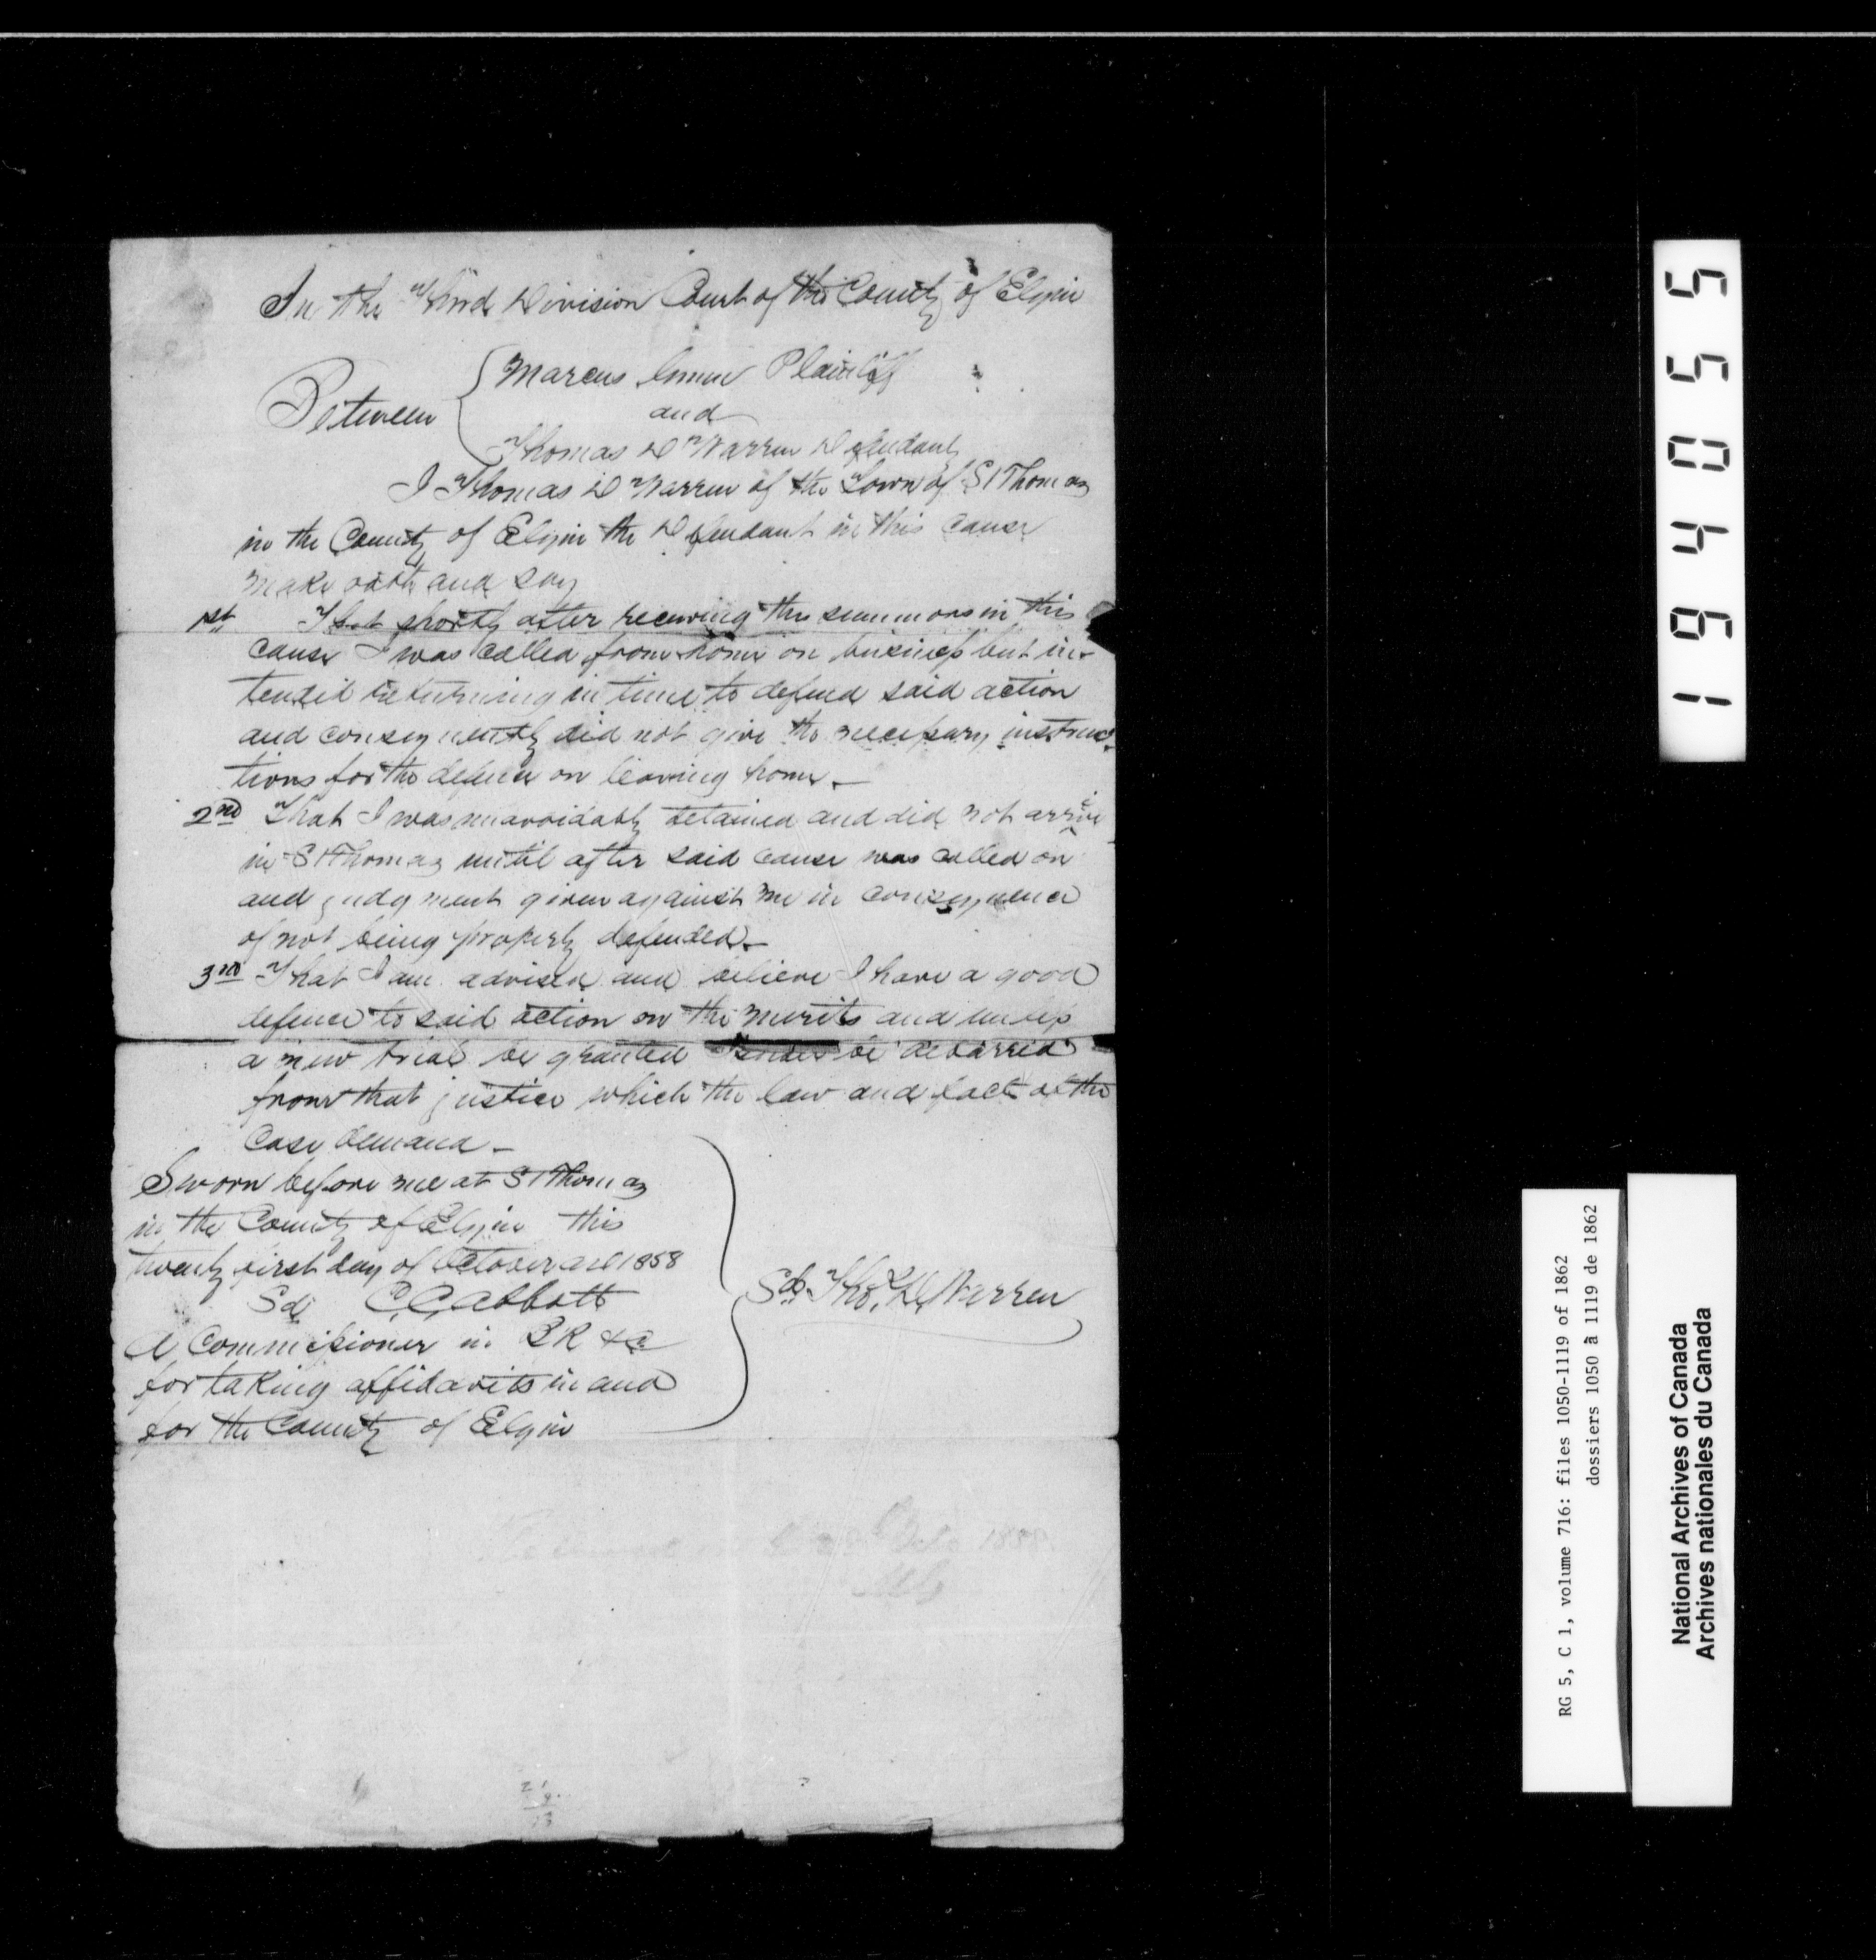 In the Third Division Court of the County of Elgin
Marcus Plaintiff
Between
and
Thomas D Warren Defendant
I Thomas D Warren of the Town of St Thomas
in the County of Elgin the Defendant in this cause
make oath and say
1st That shortly after receiving the summons in this
cause I was called from home on business but in-
tended returning in time to defend said action
and consequently did not give the necessary instruc-
tions for the defence on leaving home. –
2nd That I was unavoidably detained and did not arrive
in St Thomas until after said cause was called on
and judgment given against me in consequence
of not being properly defended. –
3rd That I am advised and believe I have a good
defence to said action on the merits and unless
a new trial be granted be debarred
from that justice which the law and fact of the
case demand –
Sworn before me at St Thomas
in the County of Elgin this
twenty first day of October AD 1858
Sd C C Abbott
A Commissioner in BR &c
for taking affidavits in and
for the County of Elgin
Sd. Tho. D. Warren
194055
RG 5, C 1, volume 716: files 1050-1119 of 1862
dossiers 1050 à 1119 de 1862
National Archives of Canada
Archives nationales du Canada